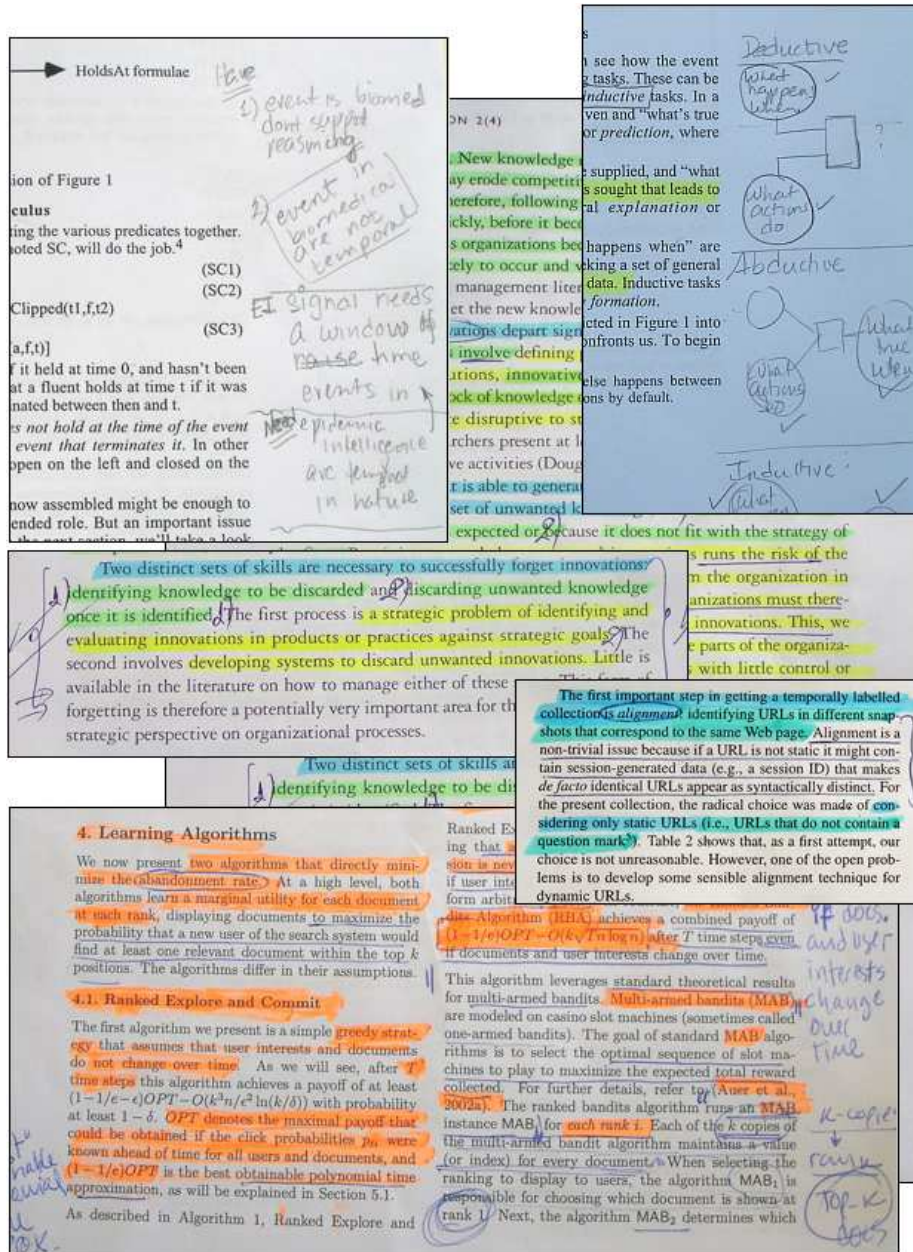 HoldsAt formulae
ion of Figure 1
culus
ing the various predicates together.
noted SC, will do the job.4
(SC1)
(SC2)
Clipped(t1,f,t2)
(SC3)
[a,f,t)]
f it held at time 0, and hasn't been
at a fluent holds at time t if it was
nated between then and t.
s not hold at the time of the event
event that terminates it. In other
open on the left and closed on the
now assembled might be enough to
ended role. But an important issue
the next section, we'll take a look
Have
1) event is biomed
dont support
reasoning
2) event in
biomedical
are not
temporal
EI signal needs
a window of
time
events in
Need epidemic
intelligence
are temporal
in nature
ON 2(4)
. New knowledge
ay erode competiti
herefore, following
ickly, before it beco
s organizations bec
ely to occur and v
management liter
et the new knowle
vations depart sign
involve defining
utions, innovative
ock of knowledge
e disruptive to st
rchers present at l
ve activities (Doug
t is able to genera
set of unwanted k
expected or because it does not fit with the strategy of
runs the risk of the
m the organization in
anizations must there-
innovations. This, we
e parts of the organiza-
s with little control or
see how the event
g tasks. These can be
inductive tasks. In a
ven and "what's true
or prediction, where
supplied, and "what
s sought that leads to
al explanation or
happens when" are
king a set of general
data. Inductive tasks
formation.
cted in Figure 1 into
onfronts us. To begin
else happens between
ons by default.
Deductive
What
happens
when
?
What
actions
do
Abductive
What
true
when
What
actions
do
Inductive:
What
Two distinct sets of skills are necessary to successfully forget innovations:
identifying knowledge to be discarded and discarding unwanted knowledge
once it is identified. The first process is a strategic problem of identifying and
evaluating innovations in products or practices against strategic goals. The
second involves developing systems to discard unwanted innovations. Little is
available in the literature on how to manage either of these
forgetting is therefore a potentially very important area for th
strategic perspective on organizational processes.
Two distinct sets of skills a
identifying knowledge to be dis
The first important step in getting a temporally labelled
collection is alignment: identifying URLs in different snap
shots that correspond to the same Web page. Alignment is a
non-trivial issue because if a URL is not static it might con-
tain session-generated data (e.g., a session ID) that makes
de facto identical URLs appear as syntactically distinct. For
the present collection, the radical choice was made of con-
sidering only static URLs (i.e., URLs that do not contain a
question mark5). Table 2 shows that, as a first attempt, our
choice is not unreasonable. However, one of the open prob-
lems is to develop some sensible alignment technique for
dynamic URLs.
4. Learning Algorithms
We now present two algorithms that directly mini-
mize the abandonment rate. At a high level, both
algorithms learn a marginal utility for each document
at each rank, displaying documents to maximize the
probability that a new user of the search system would
find at least one relevant document within the top k
positions. The algorithms differ in their assumptions.
4.1. Ranked Explore and Commit
The first algorithm we present is a simple greedy strat-
egy that assumes that user interests and documents
do not change over time. As we will see, after T
time steps this algorithm achieves a payoff of at least
(1−1/e−ε)OPT−O(k³n/ε² ln(k/δ)) with probability
at least 1 − δ. OPT denotes the maximal payoff that
could be obtained if the click probabilities were
known ahead of time for all users and documents, and
(1 − 1/e)OPT is the best obtainable polynomial time
approximation, as will be explained in Section 5.1.
As described in Algorithm 1, Ranked Explore and
Ranked Ex
ing that
sion is nev
if user inte
form arbit
dits Algorithm (RBA) achieves a combined payoff of
(1−1/e)OPT−O(k√Tn log n) after T time steps even
if documents and user interests change over time.
This algorithm leverages standard theoretical results
for multi-armed bandits. Multi-armed bandits (MAB)
are modeled on casino slot machines (sometimes called
one-armed bandits). The goal of standard MAB algo-
rithms is to select the optimal sequence of slot ma-
chines to play to maximize the expected total reward
collected. For further details, refer to (Auer et al.,
2002a). The ranked bandits algorithm runs an MAB
instance MABi for each rank i. Each of the k copies of
the multi-armed bandit algorithm maintains a value
(or index) for every document. When selecting the
ranking to display to users, the algorithm MAB1 is
responsible for choosing which document is shown at
rank 1. Next, the algorithm MAB2 determines which
If docs.
and user
interests
change
over
time
K-copies
rank
TOP-K
DOCS